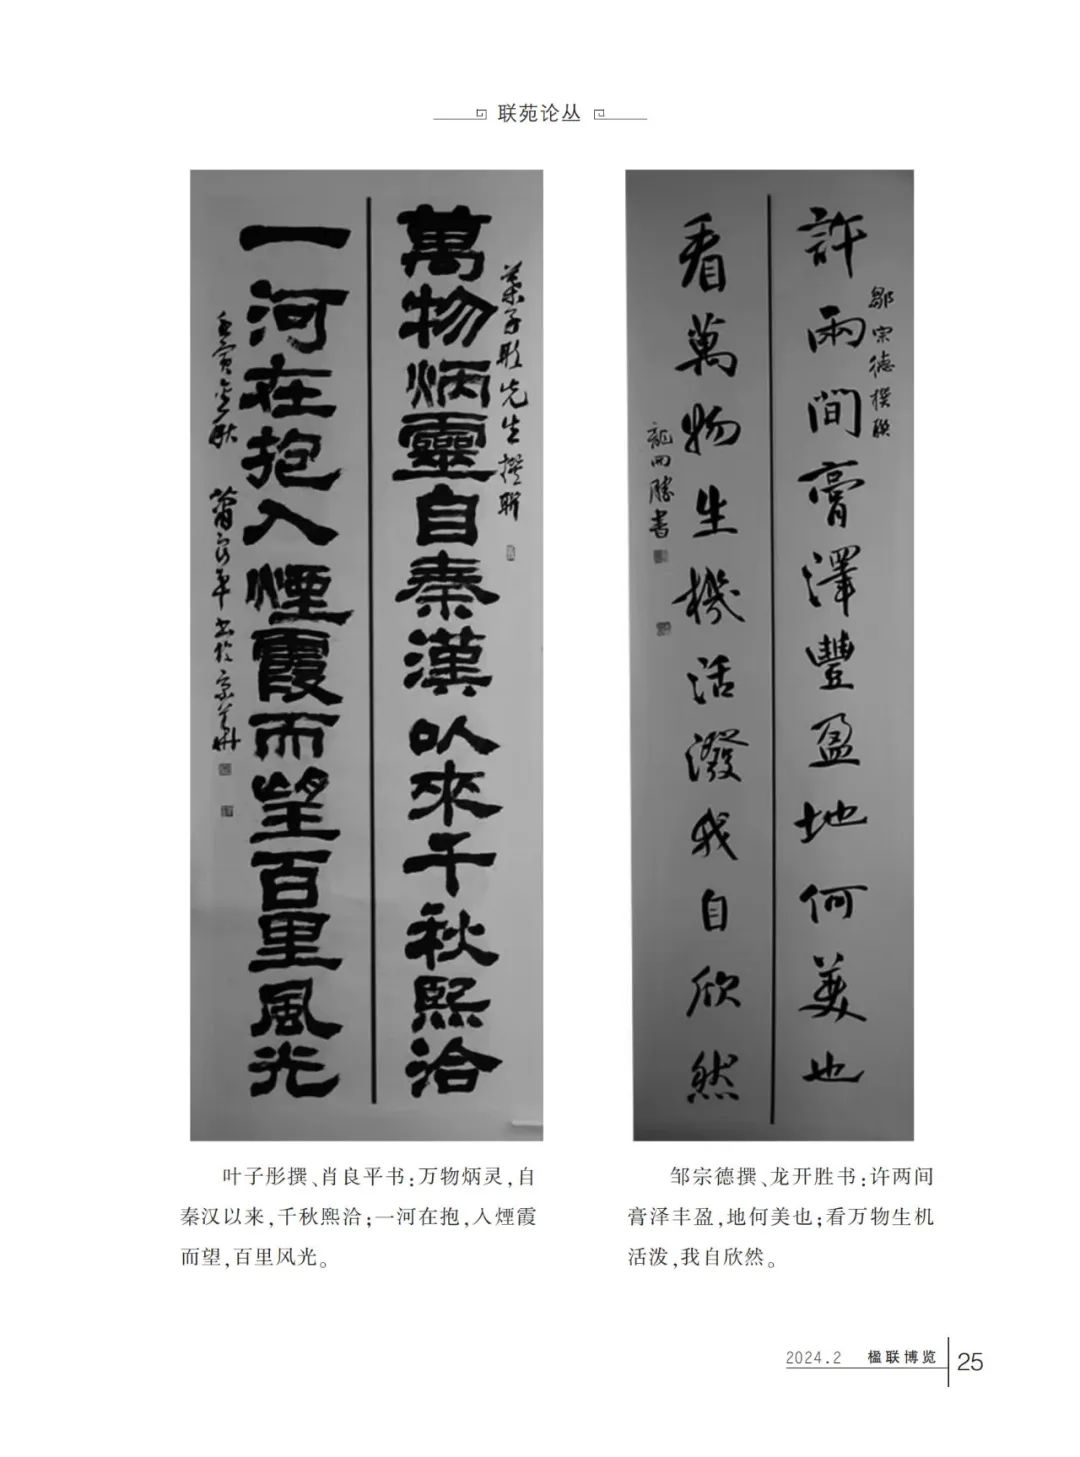 联苑论丛
萬物炳靈自秦漢以來千秋熙洽
葉子彤先生撰聯
一河在抱入煙霞而望百里風光
壬寅金秋 蕭良平書於京華
許兩間膏澤豐盈地何美也
鄒宗德撰聯
看萬物生機活潑我自欣然
龍開勝書
叶子彤撰、肖良平书：万物炳灵，自
秦汉以来，千秋熙洽；一河在抱，入煙霞
而望，百里风光。
邹宗德撰、龙开胜书：许两间
膏泽丰盈，地何美也；看万物生机
活泼，我自欣然。
2024.2 楹联博览 25